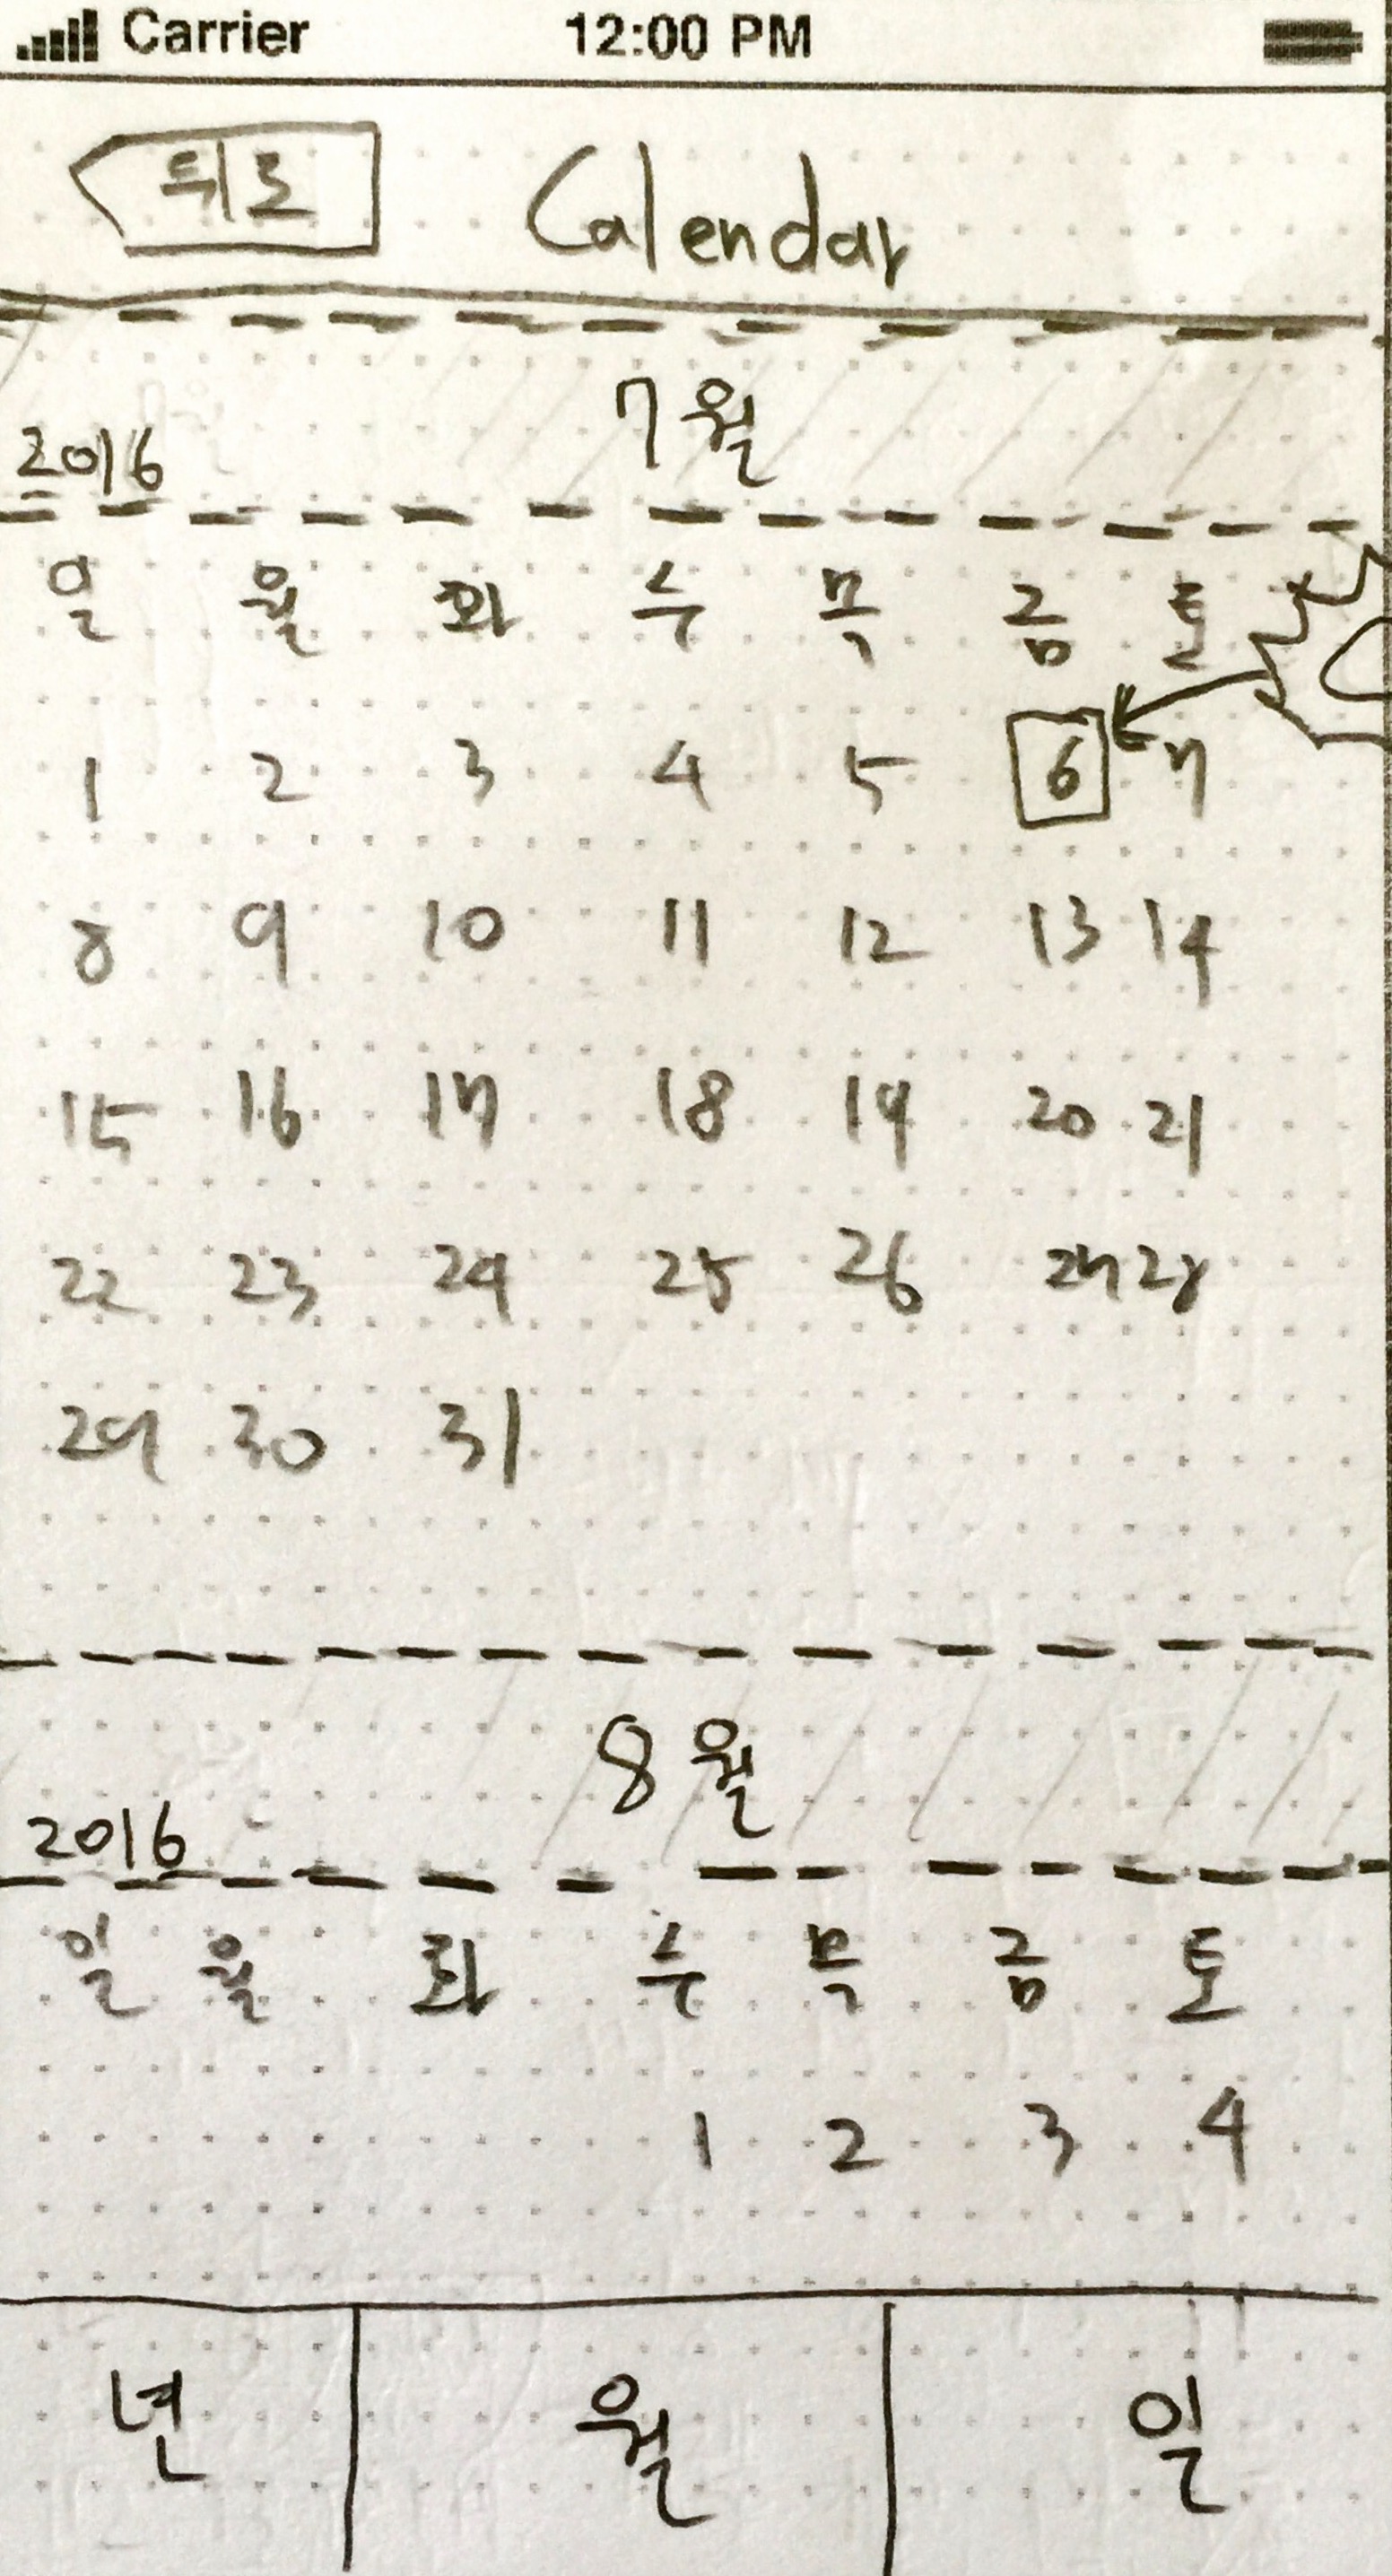 Carrier 12:00 PM
뒤로 Calendar
7월
2016
일 월 화 수 목 금 토
1 2 3 4 5 6 7
8 9 10 11 12 13 14
15 16 17 18 19 20 21
22 23 24 25 26 27 28
29 30 31
8월
2016
일 월 화 수 목 금 토
1 2 3 4
년 월 일